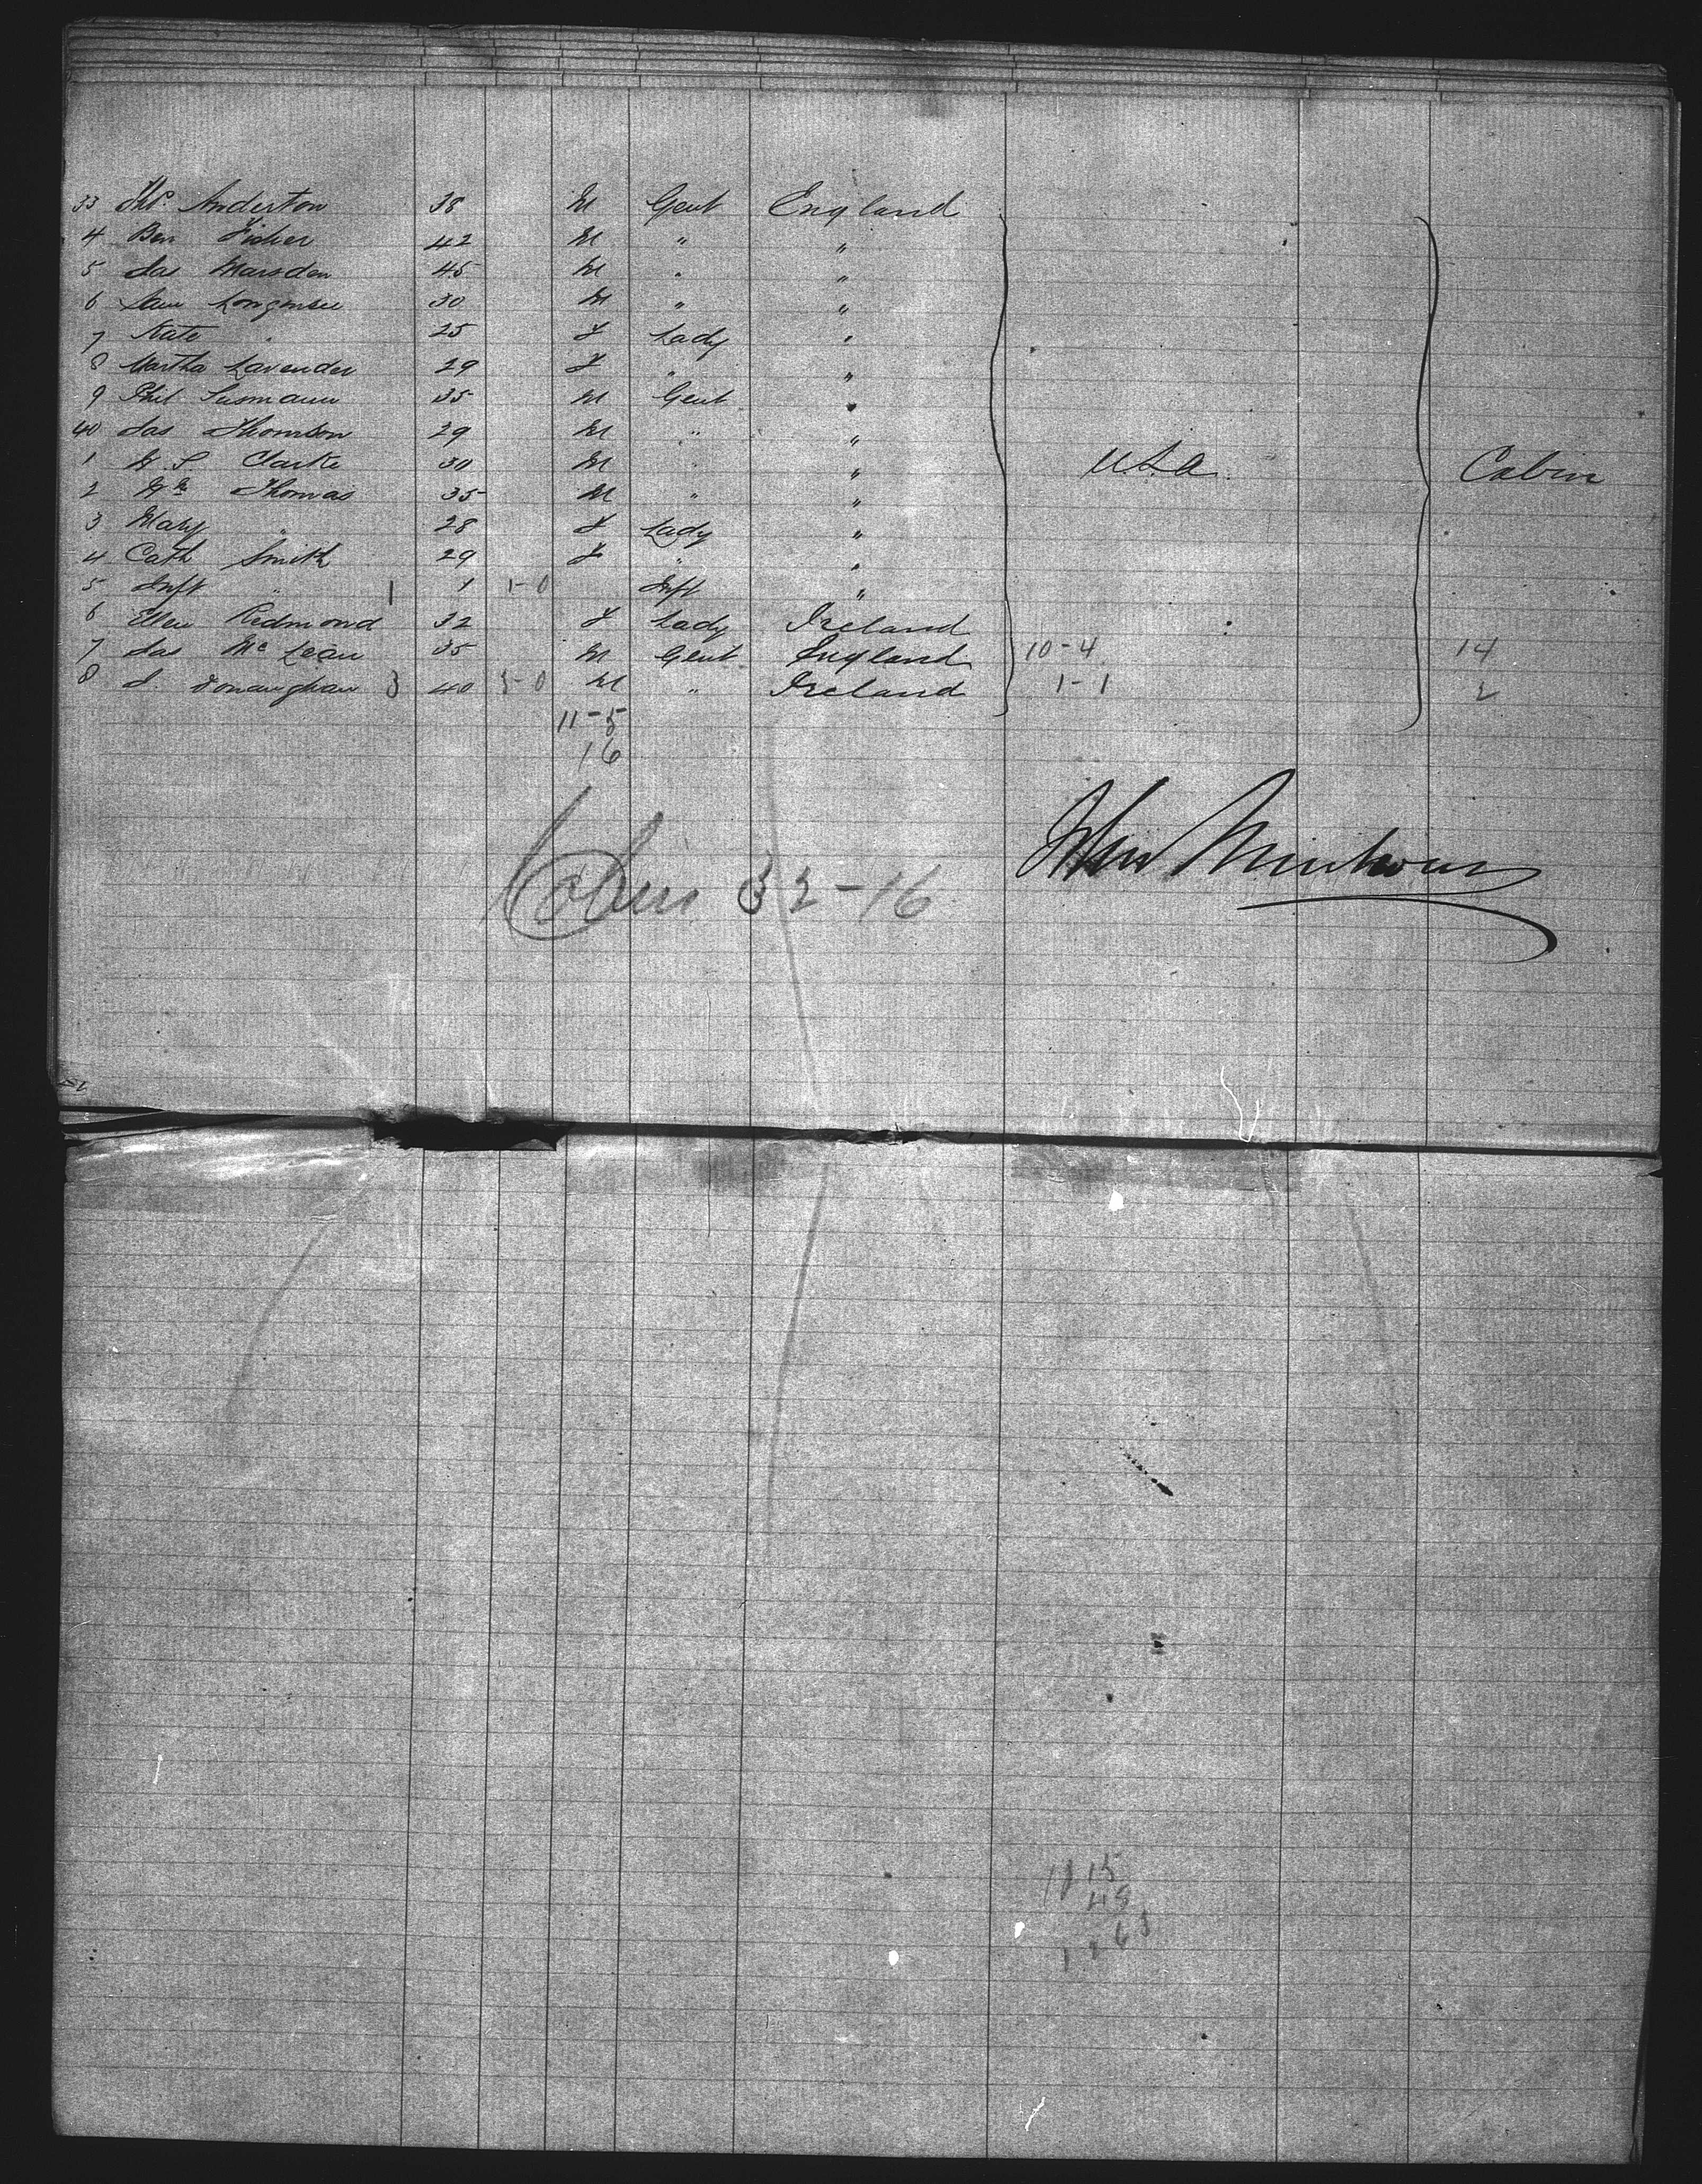 33 Thos Anderton 38 M Gent England
4 Ben Fisher 42 M " "
5 Jas Marsden 45 M " "
6 Sam 30 M " "
7 Kate " 25 F Lady "
8 Martha Lavender 29 F " "
9 Phil Susmann 35 M Gent "
40 Jas Thomson 29 M " "
1 W. S. Clarke 30 M " " USA Cabin
2 Wm Thomas 35 M " "
3 Mary " 28 F Lady "
4 Cath Smith 29 F " "
5 Inft " 1 1 1-0 Inft "
6 Ellen Redmond 32 F Lady Ireland
7 Jas McLean 35 M Gent England 10-4 14
8 J. Donaughan 3 40 3-0 M " Ireland 1-1 2
11-5
16
Cabin 32-16
15
48